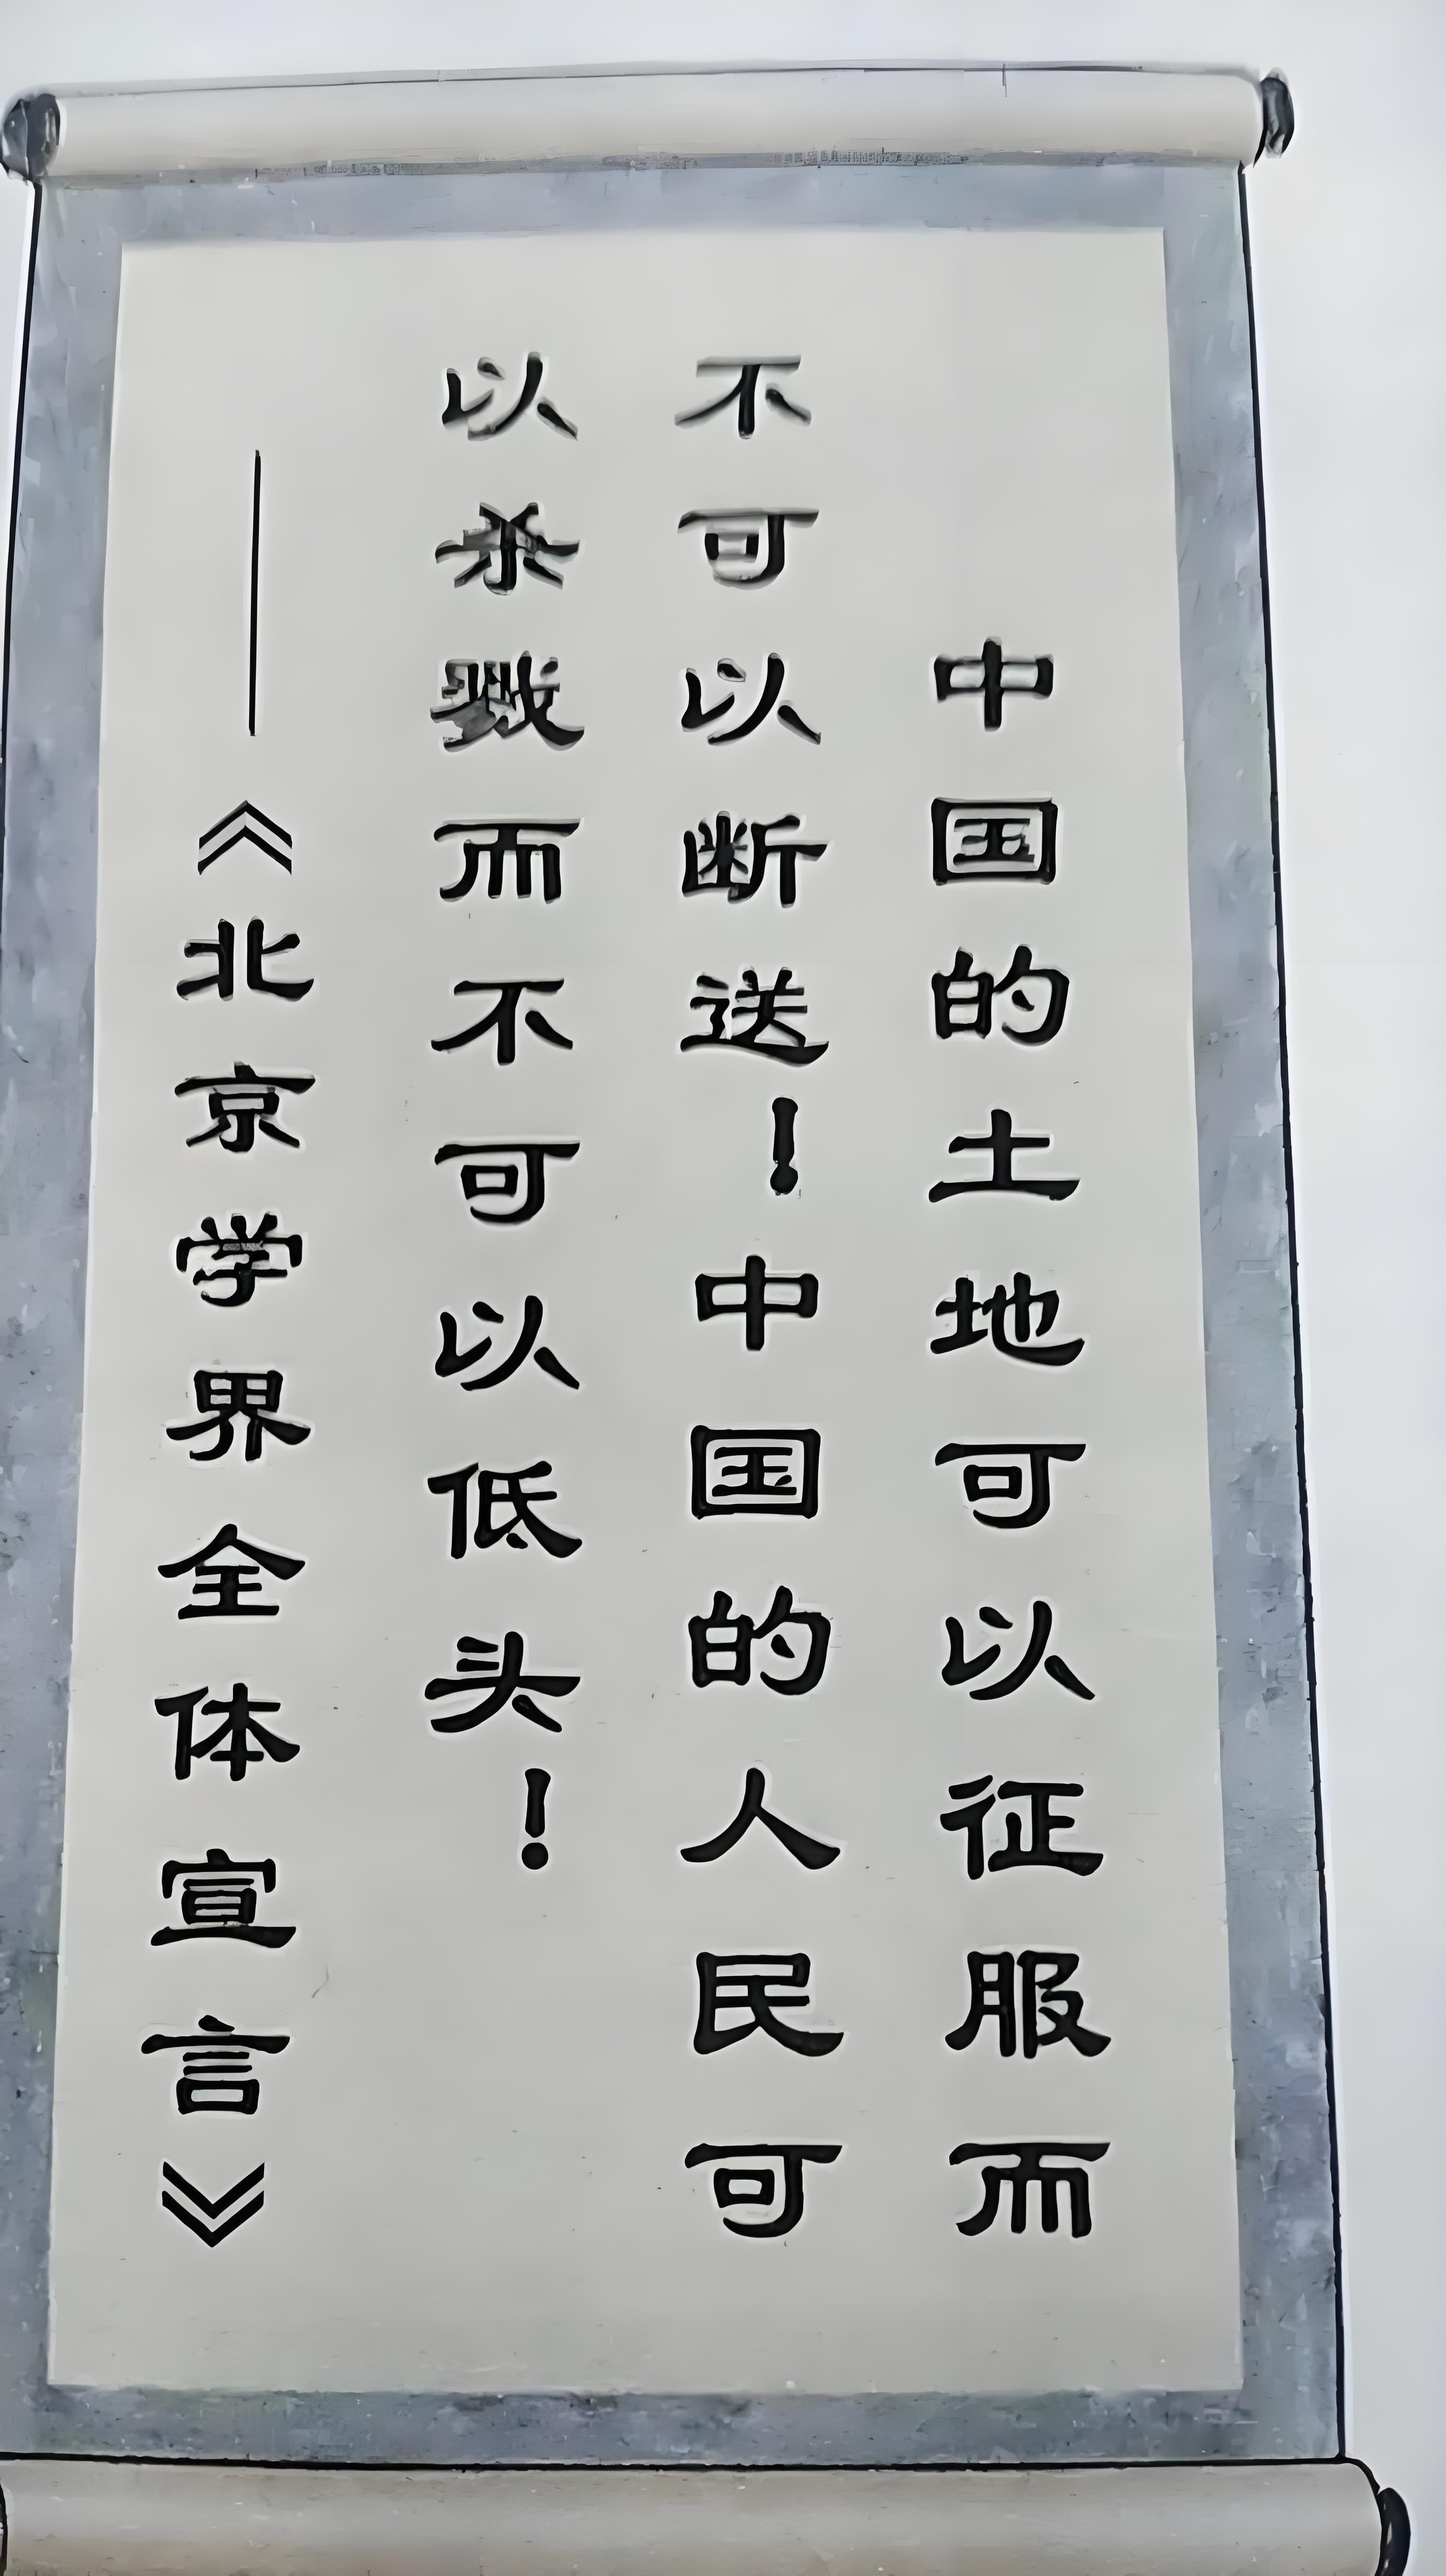 中国的土地可以征服而
不可以断送！中国的人民可
以杀戮而不可以低头！
——《北京学界全体宣言》